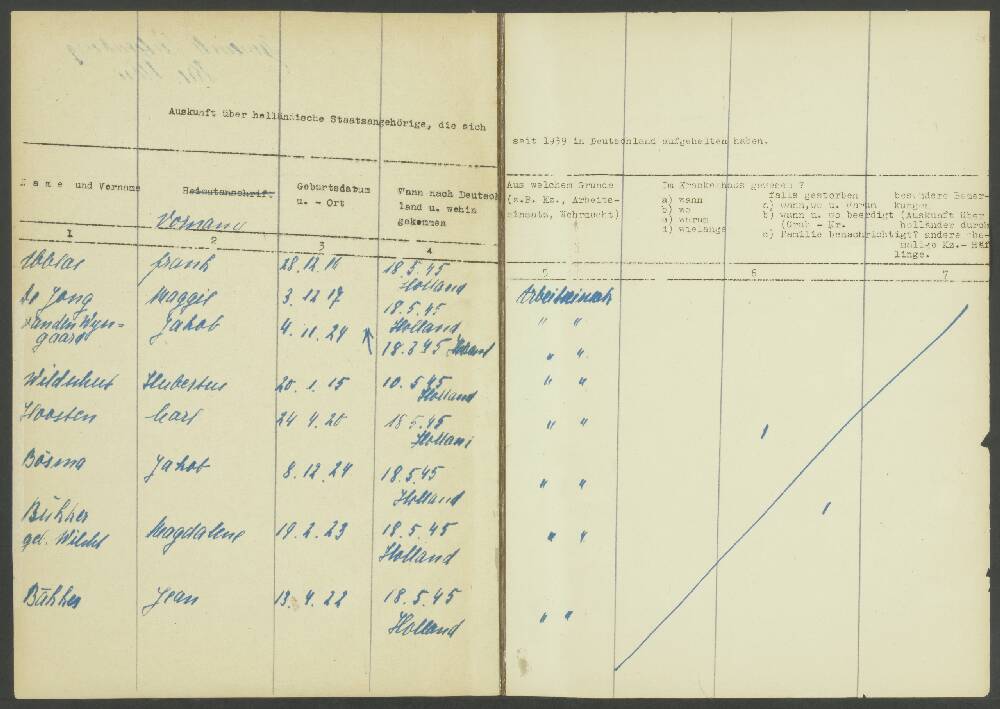 Auskunft über holländische Staatsangehörige, die sich seit 1939 in Deutschland aufgehalten haben.
Name und Vorname
Heimatanschrift
Vorname
Geburtsdatum
u. - Ort
Wann nach Deutsch
land u. wohin
gekommen
Aus welchem Grunde
(z.B. Kz., Arbeits-
einsatz, Wehrmacht)
Im Krankenhaus gewesen ?
a) wann
b) wo
c) warum
d) wielange
falls gestorben
a) wann, wo u. warum
b) wann u. wo beerdigt
(Grab - Nr.
c) Familie benachrichtigt?
besondere Bemer-
kungen
(Auskunft über
holländer durch
andere ehe-
malige Kz.- Häf
linge.
1 2 3 4 5 6 7
Frank 28.12.14 18.5.45 Holland Arbeitseinsatz
De Jong Maggie 3.12.17 18.5.45 Holland " "
van den Wyn-
gaard Jakob 4.11.24 18.3.45 Holland " "
Wildschut Hubertus 20.1.15 10.5.45 Holland " "
Hoosten Carl 24.4.20 18.5.45 Holland " "
Bösma Jakob 8.12.24 18.5.45 Holland " "
Bühher
geb. Magdalene 19.2.23 18.5.45 Holland " "
Bähher Jean 13.4.22 18.5.45 Holland " "